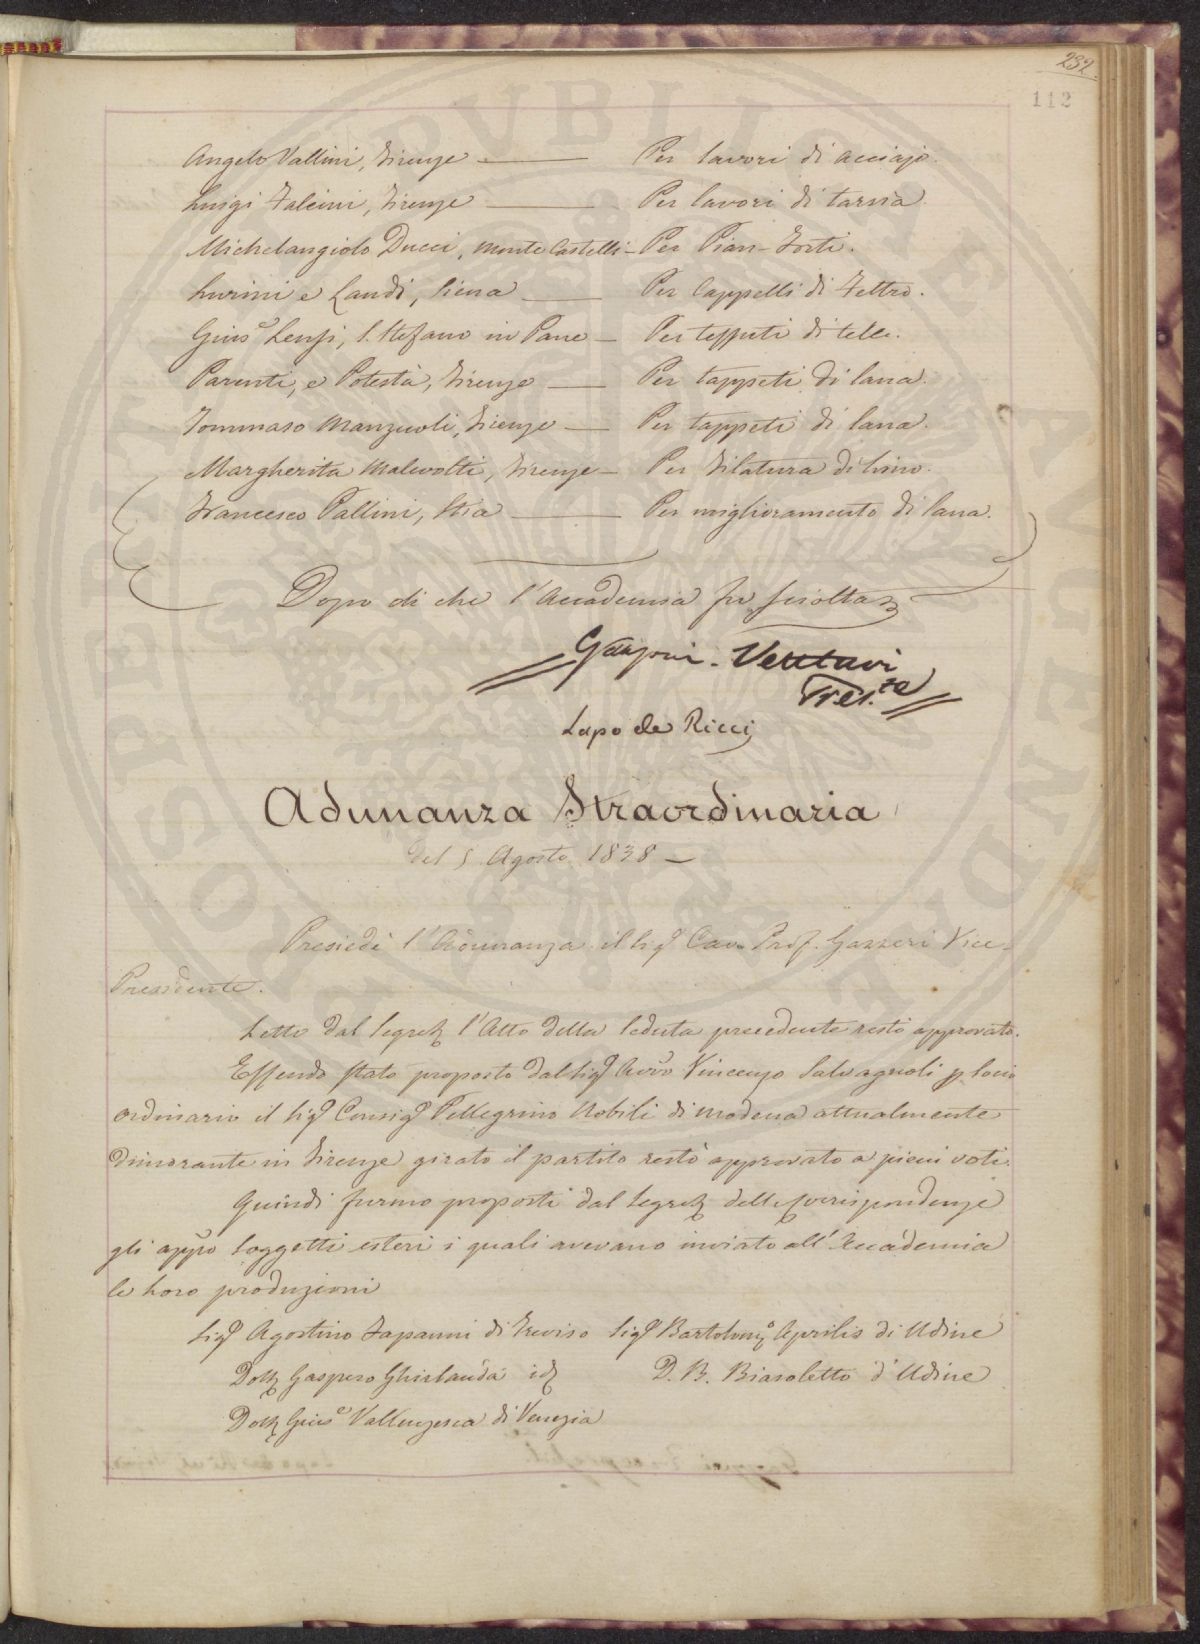 232.
112
Angelo Vallini, Firenze — Per lavori di acciajo.
Luigi Falcini, Firenze — Per lavori di tarsia.
Michelangiolo Ducci, Monte Castelli — Per Pian-Forti.
Lurini e Landi, Siena — Per Cappelli di Feltro.
Giuse Lensi, S. Stefano in Pane — Per tessuti di tele.
Parenti, e Potestà, Firenze — Per tappeti di lana.
Tommaso Manzuoli, Firenze — Per tappeti di lana.
Margherita Malevolti, Firenze — Per Filatura di Lino.
Francesco Pallini, Stia — Per miglioramento di lana.
Dopo di che l'Accademia fu sciolta
Garzoni Venturi
Pres.te
Lapo de Ricci
Adunanza Straordinaria
del 5 Agosto 1838 —
Presiedè l'Adunanza il Sigr Cav. Prof. Gazzeri Vice
Presidente.
Letto dal Segret l'Atto della Seduta precedente restò approvato.
Essendo stato proposto dal Sigr Avvo Vincenzo Salvagnoli p Socio
ordinario il Sigr Consigr Pellegrino Nobili di Modena attualmente
dimorante in Firenze girato il partito restò approvato a pieni voti.
Quindi furono proposti dal Segret delle Corrispondenze
gli appro Soggetti esteri i quali avevano inviato all'Accademia
le loro produzioni
Sigr Agostino Fapanni di Treviso Sigr Bartolomo Aprilis di Udine
Dott Gaspero Ghirlanda id D. B. Biasoletto d'Udine
Dott Giuse Vallenzasca di Venezia